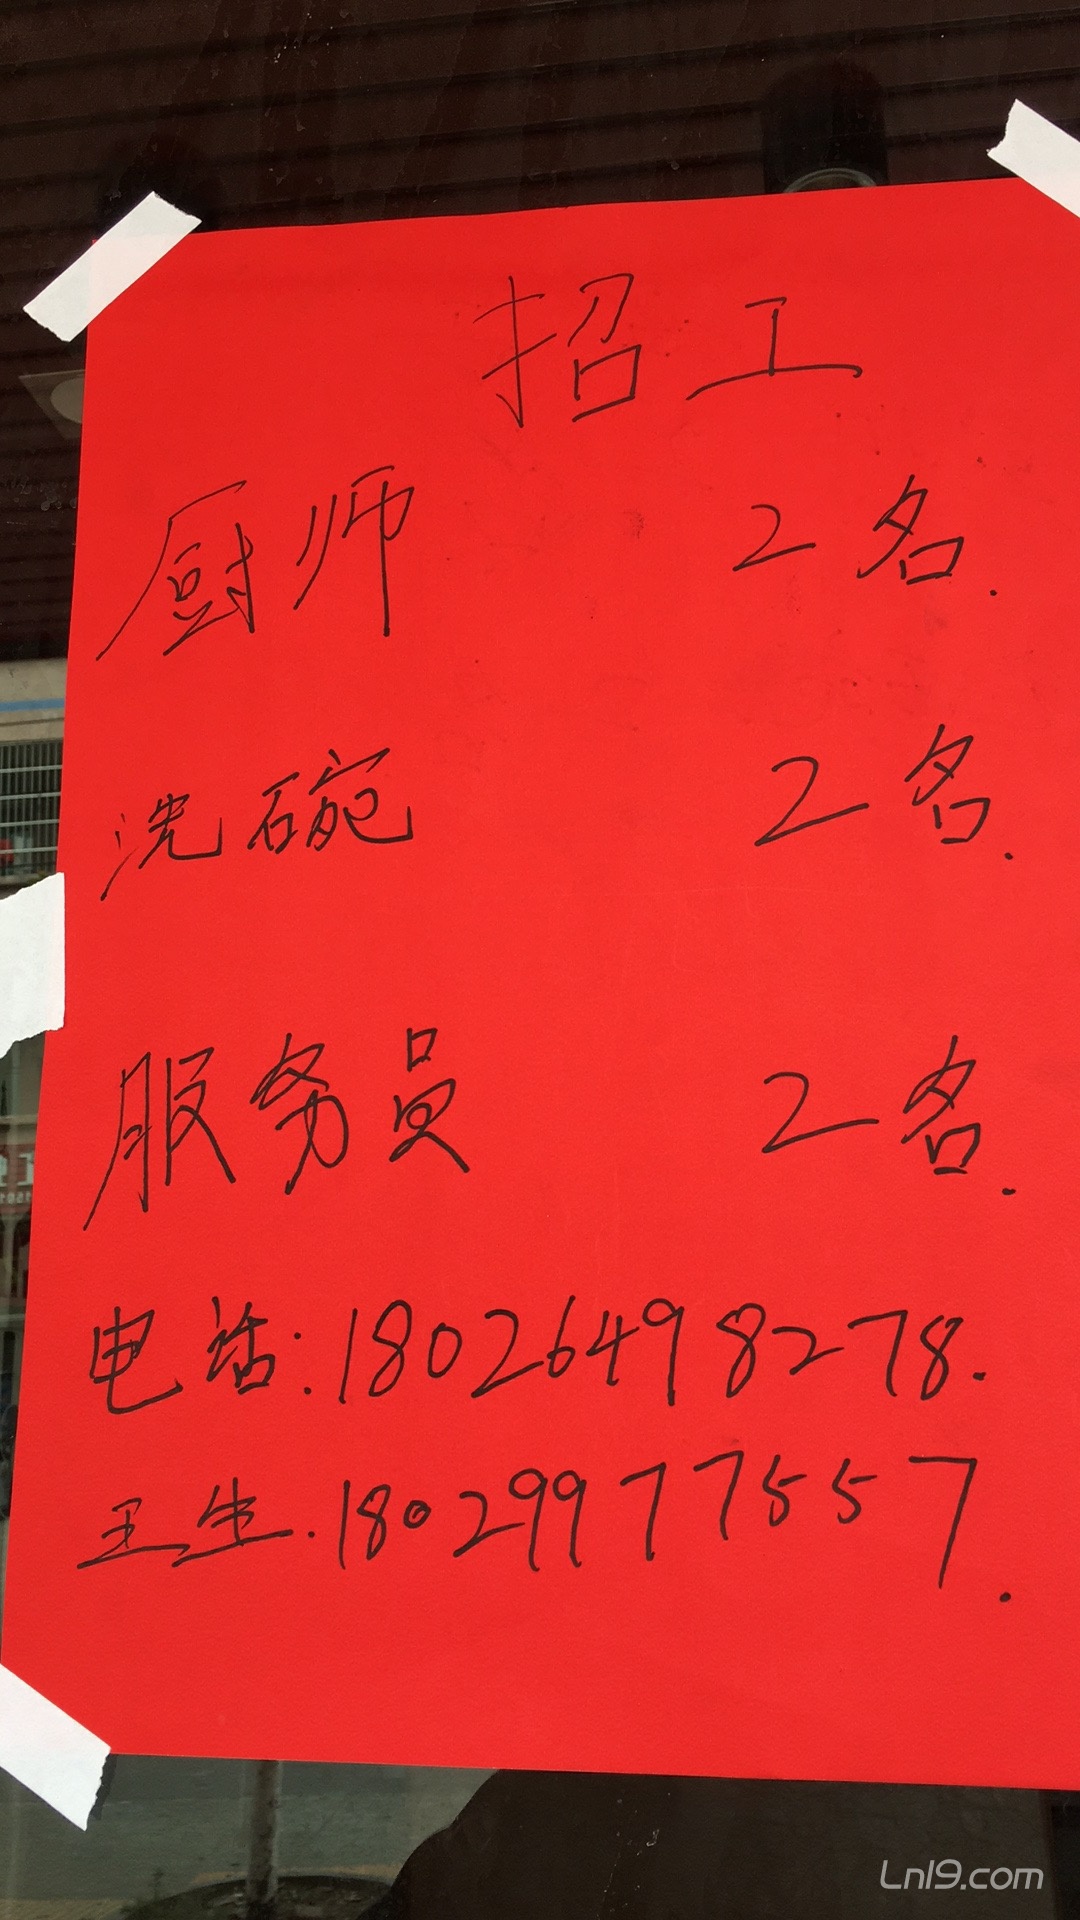 招工
厨师 2名.
洗碗 2名.
服务员 2名.
电话:18026498278.
王生.18029977557.
Lnl9.com